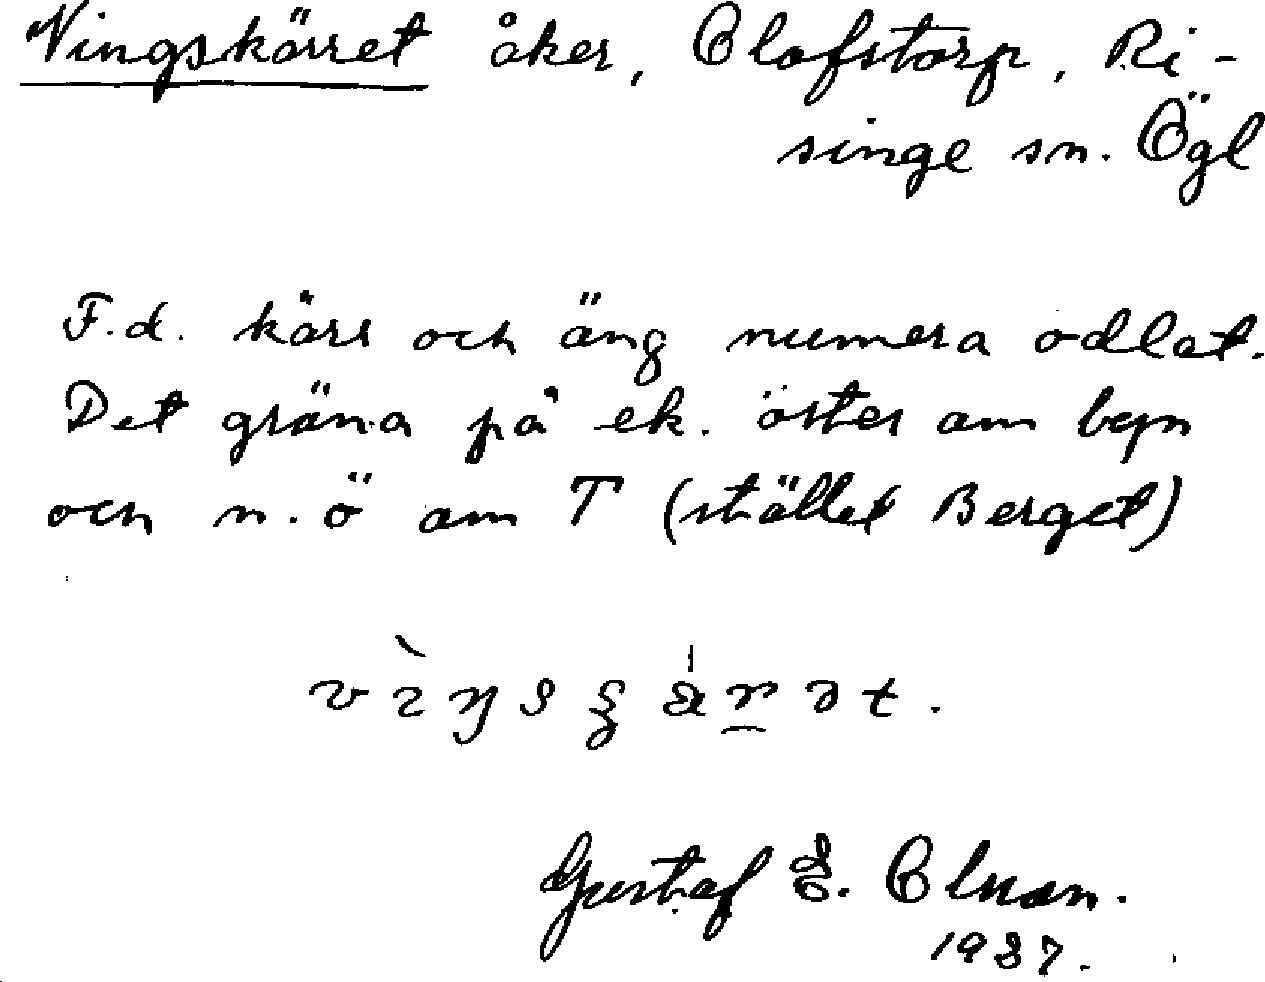 Vingskärret åker, Olofstorp, Ri-
singe sn. Ögl
F.d. kärr och äng numera odlat.
Det gräna på ek. öster om byn
och n.ö om T (stället Berget)
Gustaf E. Olsson.
1937.